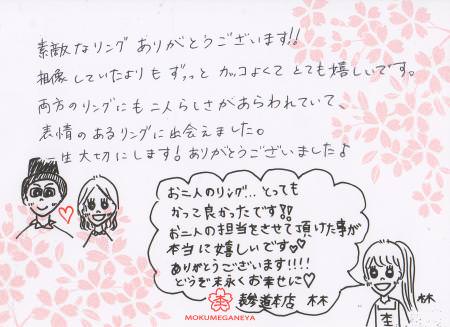 素敵なリングありがとうございます!!
想像していたよりもずっっとカッコよくてとても嬉しいです。
両方のリングにも二人らしさがあらわれていて、
表情のあるリングに出会えました。
一生大切にします!ありがとうございましたよ
お二人のリング…とっても
かって良かったです!!
お二人の担当をさせて頂けた事が
本当に嬉しいです♡
ありがとうございます!!!!
どうぞ末永くお幸せに♡
表参道本店 林
林
杢
MOKUMEGANEYA